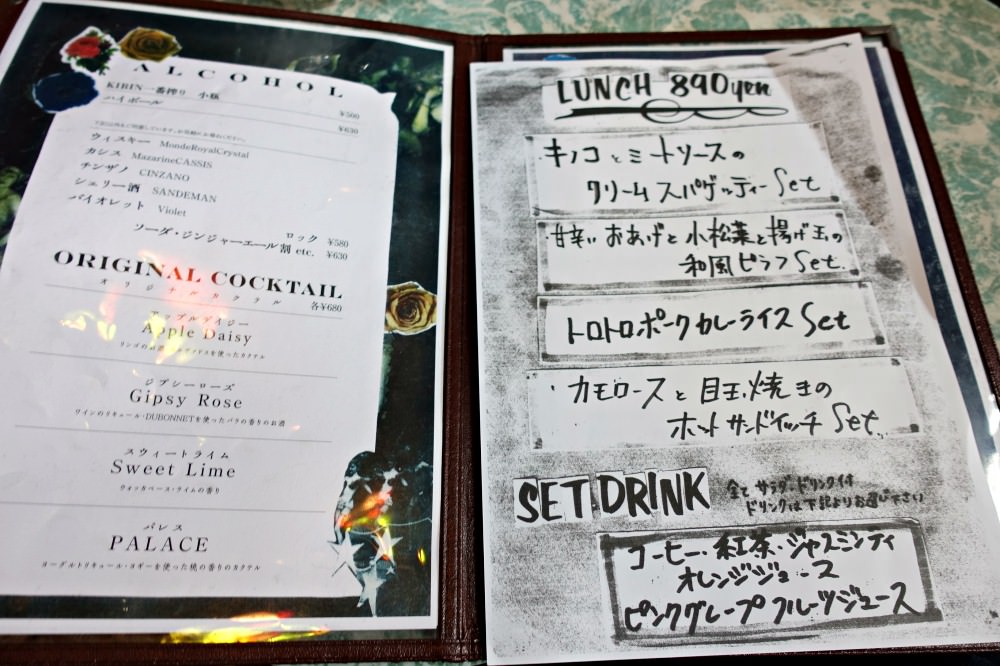 ALCOHOL
KIRIN一番搾り 小瓶 ¥500
ハイボール ¥630
ウィスキー MondeRoyalCrystal
カシス MazarineCASSIS
チンザノ CINZANO
シェリー酒 SANDEMAN
バイオレット Violet
ロック ¥580
ソーダ・ジンジャーエール割 etc. ¥630
ORIGINAL COCKTAIL
オリジナルカクテル 各¥680
アップルデイジー
Apple Daisy
ジプシーローズ
Gipsy Rose
ワインのリキュール・DUBONNETを使ったバラの香りのお酒
スウィートライム
Sweet Lime
ウォッカベース・ライムの香り
パレス
PALACE
ヨーグルトリキュール・ヨギーを使った桃の香りのカクテル
LUNCH 890yen
・キノコとミートソースの
クリームスパゲッティーSet
・甘辛いおあげと小松菜と揚げ玉の
和風ピラフSet.
・トロトロポークカレーライスSet
・カモロースと目玉焼きの
ホットサンドイッチSet
SET DRINK
全て サラダ・ドリンク付
ドリンクは下記よりお選び下さい
コーヒー・紅茶・ジャスミンティ
オレンジジュース
ピンクグレープフルーツジュース